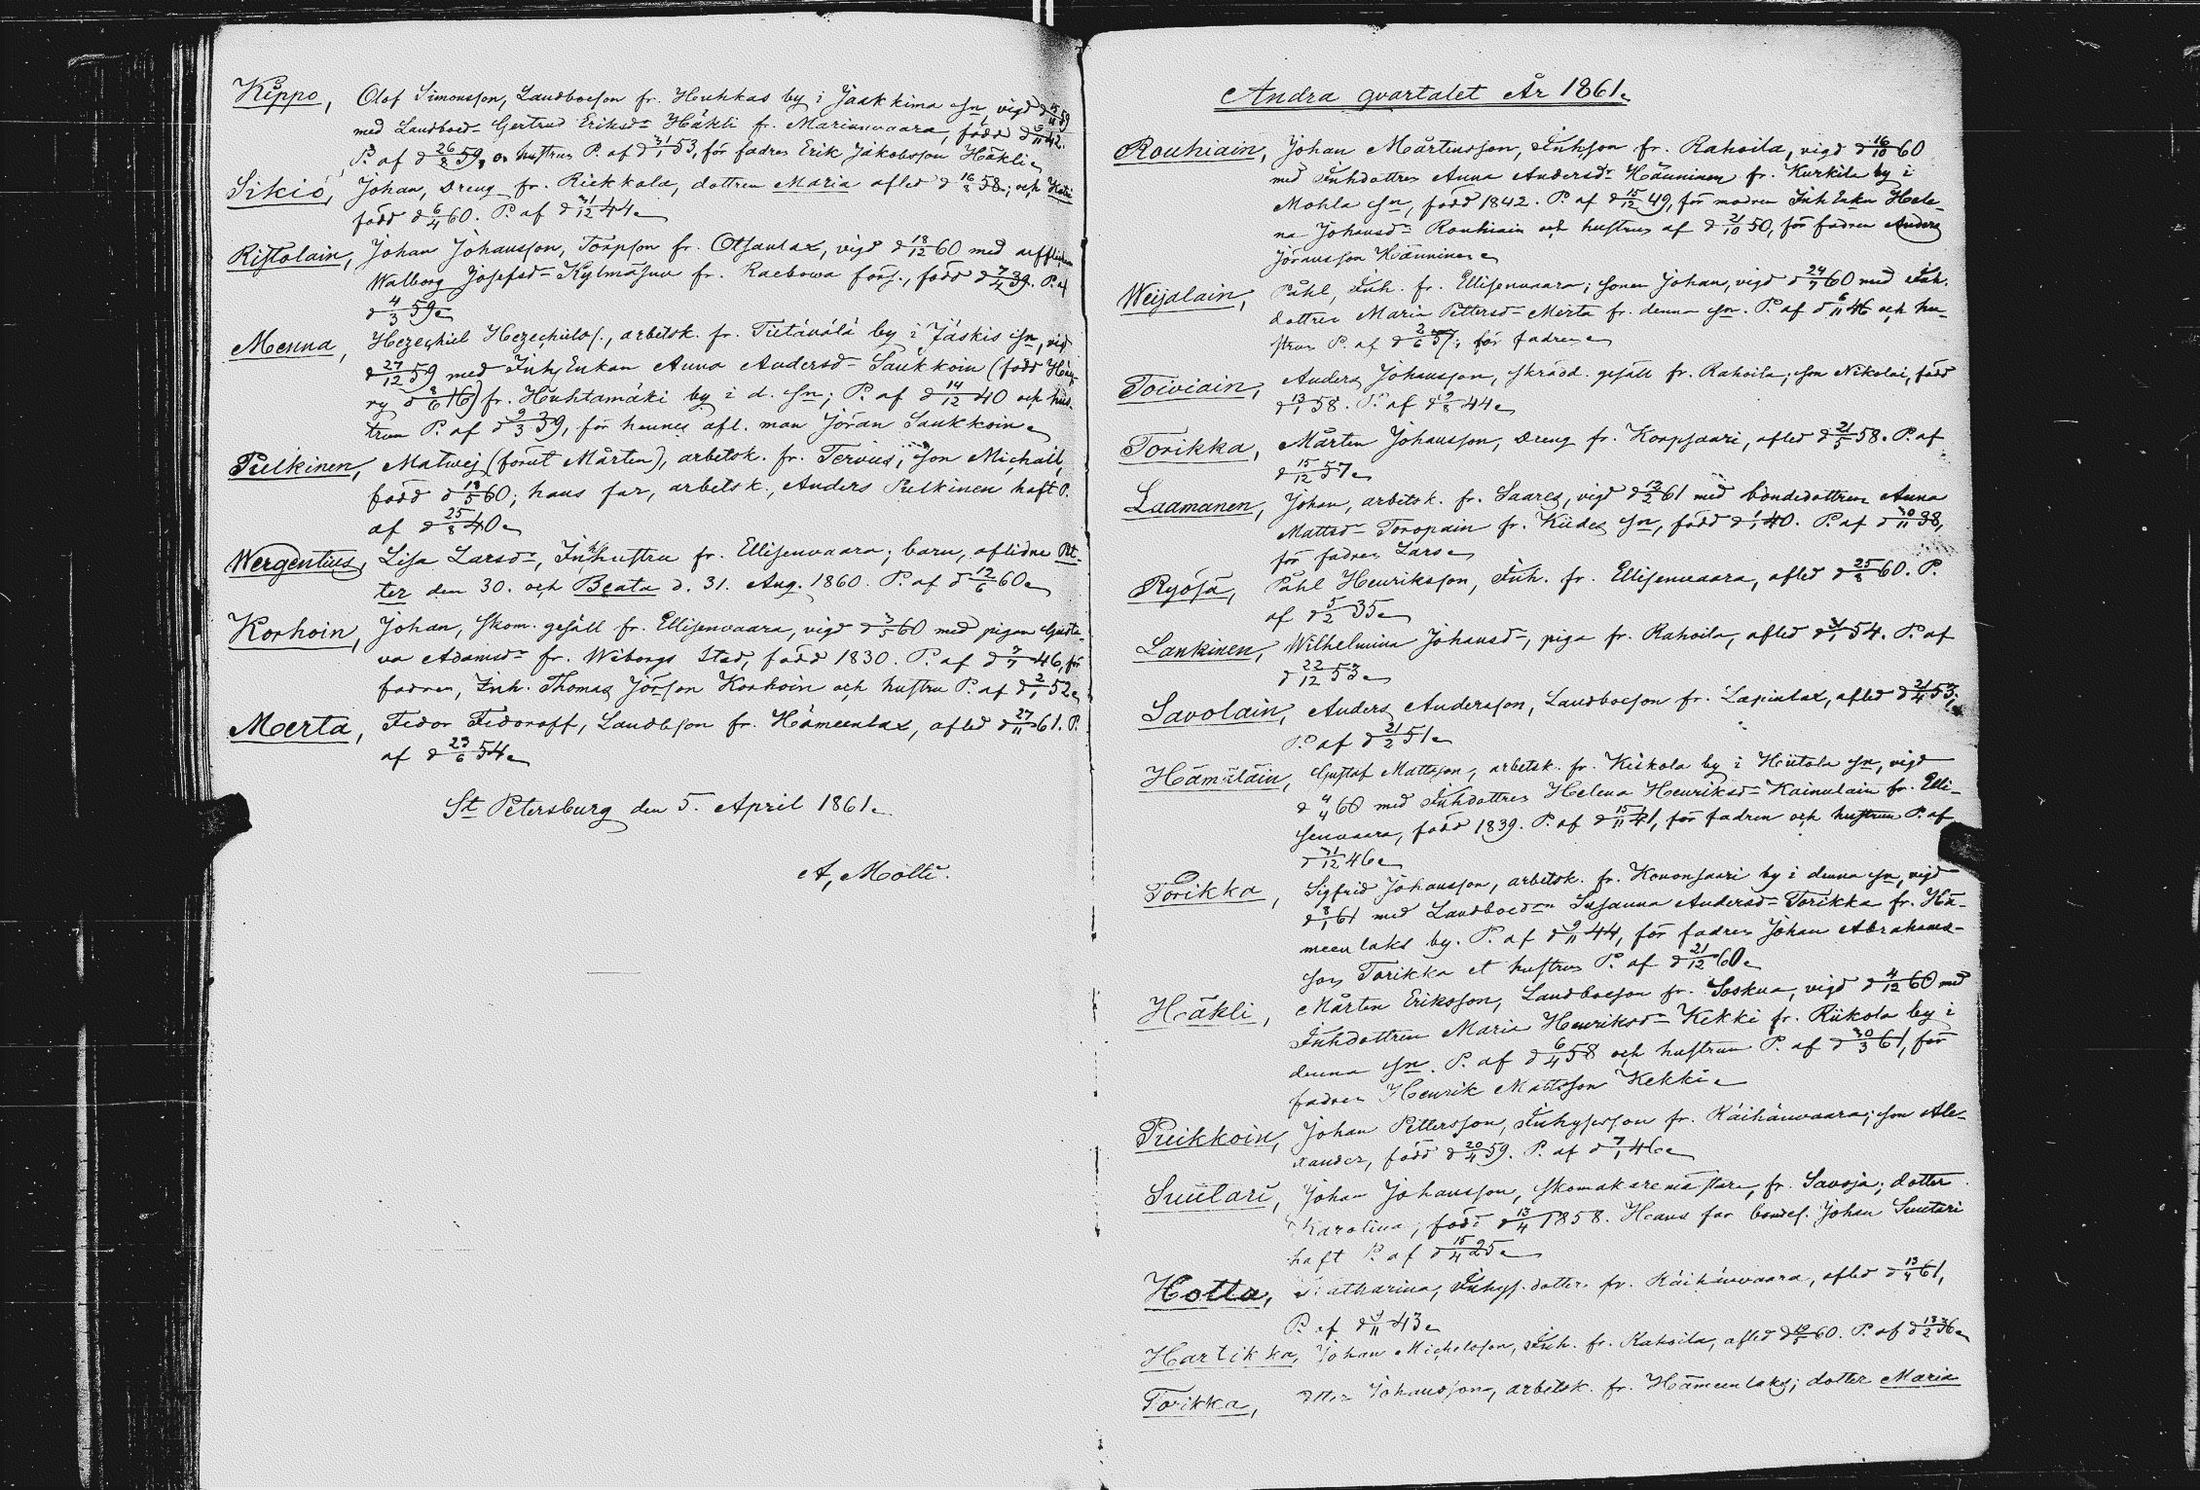 Kippo, Olof Simonsson, Landboeson fr. Huhkas by i Jaakkima sn, vigd d
med Landboed:r Gertrud Eriksd:r Häkli fr. Mariansvaara, född d 42.
P. af d 26/8 59, o. hustrun P. af d 31/1 53, för fadren Erik Jakobsson Häkli
Sikiö, Johan, Dreng fr. Riekkala, dottren Maria afled d 16/8 58; och
född d 6/4 60. P. af d 31/12 44
Ristolain, Johan Johansson, Torpson fr. Otsanlax, vigd d 18/12 60 med
Walborg Josefsd:r Kylmäsuu fr. Raebowa förs., född d 7/4 39. P. af
d 4/3 59
Menna, Hezechiel Hezechiels., arbetsk. fr. Tiitävälä by i Jäskis sn, vigd
d 27/12 59 med Inh. Enkan Anna Andersd:r Saukkoin (född
d 8/6 16) fr. Huhtamäki by i d. sn; P. af d 14/12 40 och hus-
trun P. af d 9/3 39, för hennes afl. man Jöran Saukkoin
Pulkinen, Matvej (förut Mårten), arbetsk. fr. Tervus; son Michail,
född d 18/5 60; hans far, arbetsk., Anders Pulkinen haft P.
af d 25/8 40
Wergentius, Lisa Larsd:r, Inhhustru fr. Ellisenvaara; barn, aflidne Pet-
ter den 30. och Beata d. 31. Aug. 1860. P. af d 12/6 60
Korhoin, Johan, skom. gesäll fr. Ellisenvaara, vigd d 3/5 60 med pigan Gusta-
va Adamsd:r fr. Wiborgs Stad, född 1830. P. af d 7/7 46, för
fadren, Inh. Thomas Jörson Korhoin och hustru P. af d 2/1 52
Merta, Fedor Fedoroff, Landbson fr. Hämeenlax, afled d 27/11 61. P.
af d 23/6 54
St Petersburg den 5. April 1861.
A, Molti.
Andra qvartalet År 1861.
Rouhiain, Johan Mårtensson, Inhson fr. Rahoila, vigd d 16/10 60
med Inhdottren Anna Andersd:r Hänninen fr. Kurkila by i
Mohla sn, född 1842. P. af d 15/12 49, för modren Inh Enkn Hele-
na Johansd:r Rouhiain och hustrun af d 21/10 50, för fadren Anders
Jöransson Hänninen
Weijalain, Påhl, Inh. fr. Ellisenvaara; sonen Johan, vigd d 24/7 60 med Inh.
dottren Maria Pettersd:r Merta fr. denna sn. P. af d 6/11 46 och hu-
strun P. af d 2/6 57; för fadren
Toiviain, Anders Johansson, skrädd. gesäll fr. Rahoila; son Nikolai, född
d 13/1 58. P. af d 9/8 44
Torikka, Mårten Johansson, Dreng fr. Korpsaari, afled d 21/5 58. P. af
d 15/12 57
Laamanen, Johan, arbetsk. fr. Saares, vigd d 13/2 61 med bondedottren Anna
Mattsd:r Toropain fr. Kides sn, född d 1/1 40. P. af d 30/11 38,
för fadren Lars
Ryösä, Påhl Henriksson, Inh. fr. Ellisenvaara, afled d 25/8 60. P.
af d 5/2 35
Lankinen, Wilhelmina Johansd:r, piga fr. Rahoila, afled d 54. P. af
d 22/12 53
Savolain, Anders Andersson, Landboeson fr. Lapinlax, afled d 21/4 53;
P. af d 21/2 51
Hämäläin, Gustaf Mattsson, arbetsk. fr. Kiskola by i Hiitola sn, vigd
d 4/4 60 med Inhdottren Helena Henriksd:r Kainulain fr. Elli-
senvaara, född 1839. P. af d 15/11 41, för fadren och hustrun P. af
d 31/12 46
Torikka, Sigfrid Johansson, arbetsk. fr. Kononsaari by i denna sn, vigd
d 8/1 61 med Landboed:rn Susanna Andersd:r Torikka fr. Hä-
meenlaks by. P. af d 9/11 44, för fadren Johan Abrahams-
son Torikka et hustrun P. af d 21/12 60
Häkli, Mårten Eriksson, Landboeson fr. Soskua, vigd d 4/12 60 med
Inhdottren Maria Henriksd:r Kekki fr. Riikola by i
denna sn. P. af d 6/4 58 och hustrun P. af d 30/3 61, för
fadren Henrik Mattsson Kekki
Puikkoin, Johan Pettersson, Inhysesson fr. Räihänvaara; son Ale-
xander, född d 20/4 59. P. af d 7/1 46
Suutari, Johan Johansson, skomakaremästare, fr. Savoja; dotter
Karolina, född d 13/4 1858. Hans far bondes. Johan Suutari
haft P. af d 15/4 25
Hotta, Katharina, Inhys. dotter fr. Räihänvaara, afled d 13/4 61,
P. af d 43
Hartikka, Johan Michelsson, Inh. fr. Rahoila, afled d 60. P. af d 36
Torikka, Petter Johansson, arbetsk. fr. Hämeenlaks; dotter Maria